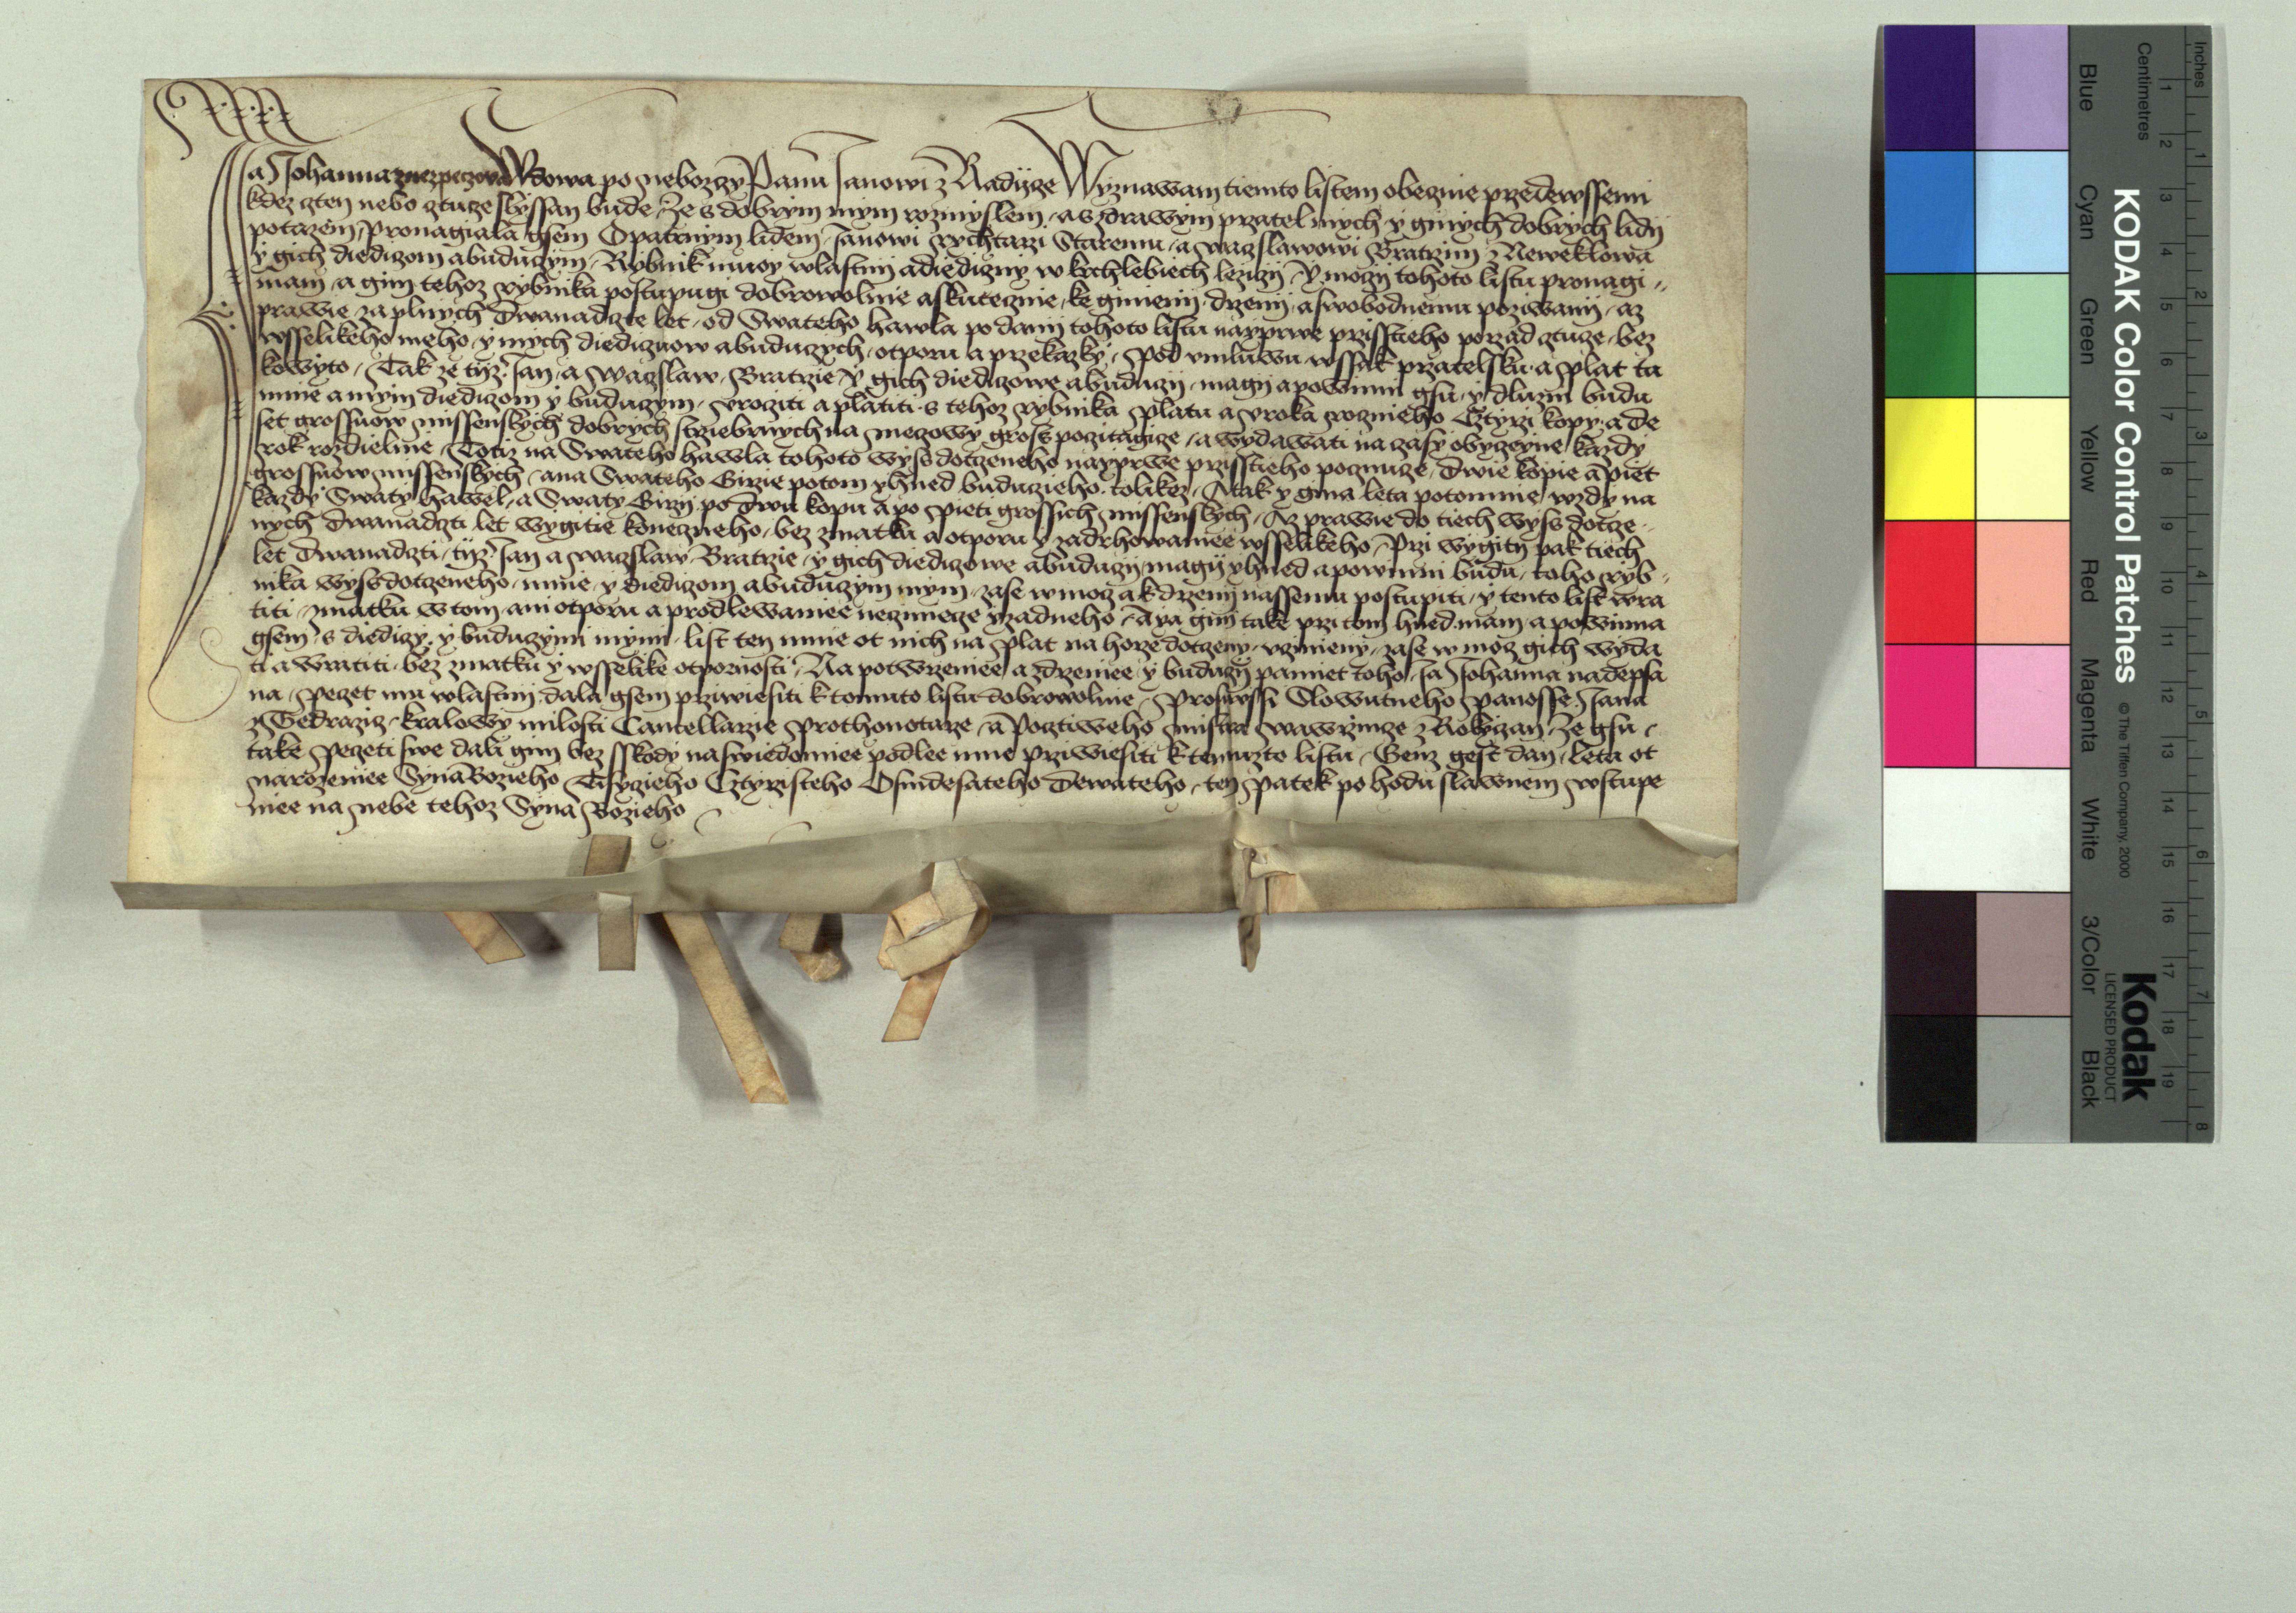 Ja Johanna Wdowa po nebozzy Panu Janowi z Radyze Wyznawam tiemto listem obeznie przede wssemi
kdez czten nebo cztuze slyssan bude, Ze s dobrym mym rozmyslem, a s zdrawym przatel mych y ginych dobrych lidij
potazem, pronagiala gsem Opatrnym lidem, Janowi rychtarzi Staremu, a waczslawowi Bratrzim z Neweklowa
y gich diediczom a buduczym, Rybnik muoy wlastnij a diediczny w krchlebiech lezicij, Y moczij tohoto listu pronagi,,
mam, a gim tehoz rybnika postupugi dobrowolnie a skutecznie, ke gmienij, drzenij, a swobodnemu poziwanij, az
prawie za plnych Dwanadczte let, od Swateho hawla po danij tohoto listu nayprwe przisstieho porzad cztuze, bez
wsselikeho meho, y mych diediczuow a buduczych, otporu a przekazky, pod vmluwu wssak przatelsku, a plat ta
kowyto, Tak ze tyz Jan, a Waczslaw, Bratrzie, y gich diediczowe a buduczij, magij a powinni gsu, y dluzni budu
mnie a mym diediczom y buduczym, vrocziti a platiti, s tehoz rybnika platu a vroka rocznieho Cztyrzi kopy, a de
set grossuow missenskych dobrych strziebrnych na mezowy gross pocztagicze, a wydawati na czasy obyczeyne, kazdy
rok rozdielnie, Totiz na Swateho hawla tohoto wyss dotczeneho nayprwe przisstieho pocznucze, Dwie kopie a piet
grossuow missenskych, a na Swateho Girzie potom yhned buduczieho, tolikez, A tak y gina leta potomnie, wzdy na
kazdy Swaty hawel, a Swaty Girzij, po Dwu kopu a po pieti grossich missenskych, Az prawie do tiech wyss dotcze,,
nych Dwanadczti let wygitie koneczneho, bez zmatku a otporu y zadrhowaniee wsselikeho, Przi wygitij pak tiech
let Dwanadczti, tyz Jan a waczslaw Bratrzie, y gich diediczowe a buduczij, magij yhned a powinni budu, toho ryb,,
nika wyss dotczeneho, mnie, y diediczom a buduczym mym, zase w mocz a k drzenij nassemu postupiti, y tento list wra
titi, zmatku w tom ani otporu a prodlewaniee neczinieze yzadneho, A ya gim take przi tom hned mam, a powinna
gsem, s diediczy, y buduczymi mymi, list ten mnie ot nich na plat na horze dotczeny, vczinieny, zase w mocz gich wyda
ti a wratiti, bez zmatku y wsselike otpornosti, Na potwrzeniee, a zdrzeniee, y buduczij pamiet toho, Ja Johanna nadepsa
na, peczet mu wlastnij, dala gsem prziwiesiti k tomuto listu dobrowolnie, Prosywssi Slowutneho panosse, Jana
z Gedraziz, kralowy milosti Cancellarzie prothonotarze, a Pocztiweho mistra Wawrzincze z Rokyczan, Ze gsu,
take peczeti swe dali gim bez sskody na swiedomiee podlee mne prziwiesiti k temuzto listu, Genz gest dan, Leta ot
narozeniee Syna Bozieho Tisyczieho Cztyrzisteho Osmdesateho Dewateho, ten patek po hodu slawnem wstupe
niee na nebe tehoz Syna Bozieho
Inches
Centimetres
KODAK Color Control Patches
© The Tiffen Company, 2000
Kodak
LICENSED PRODUCT
Blue
Cyan
Green
Yellow
Red
Magenta
White
3/Color
Black
1 2 3 4 5 6 7 8 9 10 11 12 13 14 15 16 17 18 19
1 2 3 4 5 6 7 8